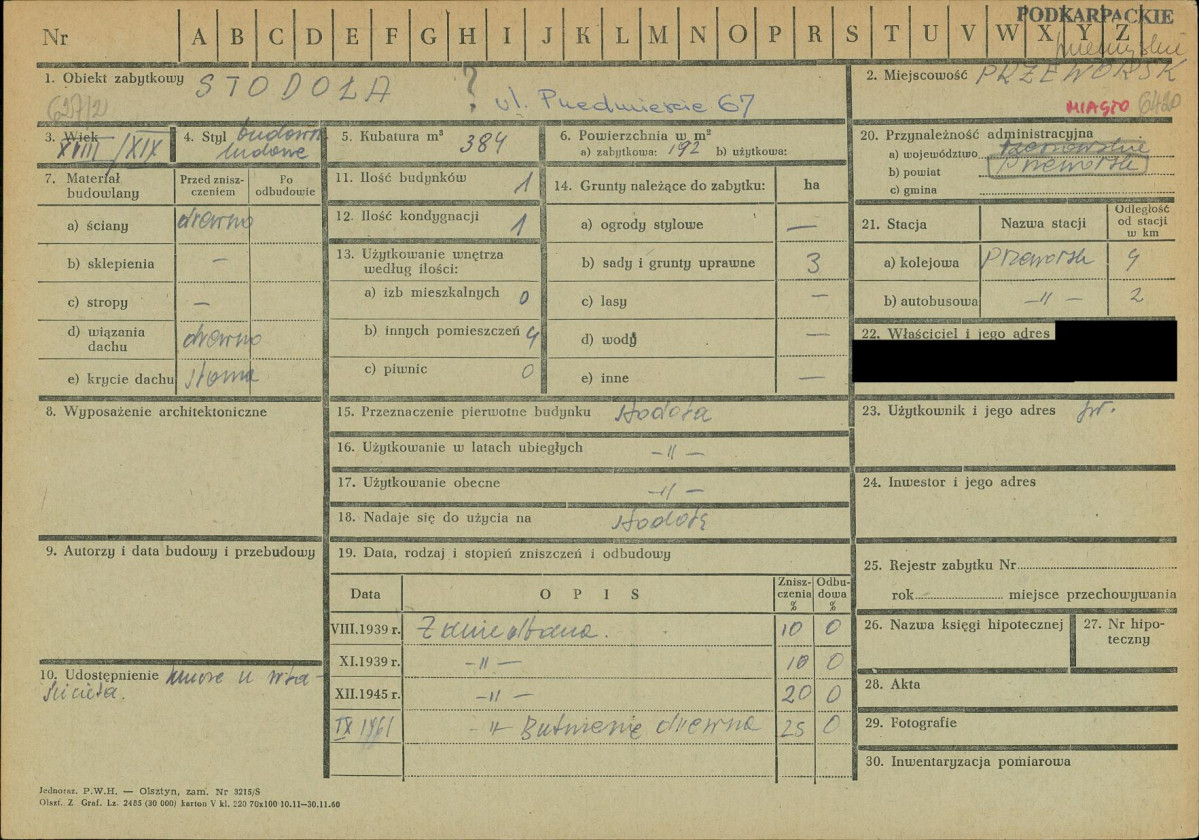 PODKARPACKIE
Nr A B C D E F G H I J K L M N O P R S T U V W X Y Z
1. Obiekt zabytkowy STODOŁA ? ul. Przedmieście 67
627/2
2. Miejscowość PRZEWORSK
MIASTO 6420
3. Wiek XVIII/XIX
4. Styl budown. ludowe
5. Kubatura m³ 384
6. Powierzchnia w m²
a) zabytkowa: 192 b) użytkowa:
7. Materiał budowlany
Przed zniszczeniem
Po odbudowie
a) ściany drewno
b) sklepienia —
c) stropy —
d) wiązania dachu drewno
e) krycie dachu słoma
8. Wyposażenie architektoniczne
9. Autorzy i data budowy i przebudowy
10. Udostępnienie u wła-
ściciela.
11. Ilość budynków 1
12. Ilość kondygnacji 1
13. Użytkowanie wnętrza według ilości:
a) izb mieszkalnych 0
b) innych pomieszczeń 4
c) piwnic 0
14. Grunty należące do zabytku: ha
a) ogrody stylowe —
b) sady i grunty uprawne 3
c) lasy —
d) wody —
e) inne —
15. Przeznaczenie pierwotne budynku stodoła
16. Użytkowanie w latach ubiegłych —〃—
17. Użytkowanie obecne —〃—
18. Nadaje się do użycia na stodołę
19. Data, rodzaj i stopień zniszczeń i odbudowy
Data OPIS Zniszczenia % Odbudowa %
VIII.1939 r. Zaniedbana. 10 0
XI.1939 r. —〃— 10 0
XII.1945 r. —〃— 20 0
IX 1961 —〃— Butwienie drewna 25 0
20. Przynależność administracyjna
a) województwo rzeszowskie
b) powiat Przeworsk
c) gmina
21. Stacja Nazwa stacji Odległość od stacji w km
a) kolejowa Przeworsk 4
b) autobusowa —〃— 2
22. Właściciel i jego adres
23. Użytkownik i jego adres jw.
24. Inwestor i jego adres
25. Rejestr zabytku Nr
rok miejsce przechowywania
26. Nazwa księgi hipotecznej
27. Nr hipoteczny
28. Akta
29. Fotografie
30. Inwentaryzacja pomiarowa
Jednoraz. P.W.H. — Olsztyn, zam. Nr 3215/S
Olszt. Z. Graf. Lz. 2485 (30 000) karton V kl. 220 70x100 10.11—30.11.60